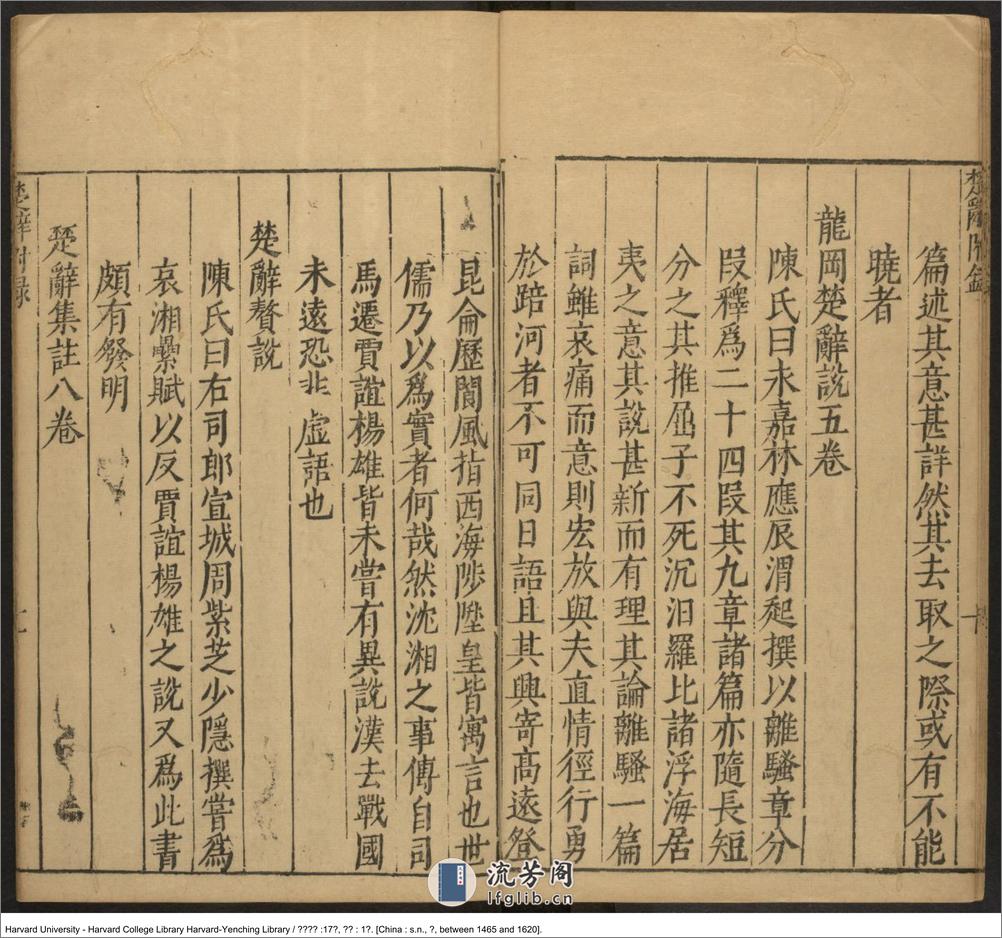 楚辭附錄
篇述其意甚詳然其去取之際或有不能
曉者
龍岡楚辭說五卷
陳氏曰永嘉林應辰渭起撰以離騷章分
段釋爲二十四段其九章諸篇亦隨長短
分之其推屈子不死沉汨羅比諸浮海居
夷之意其說甚新而有理其論離騷一篇
詞雖哀痛而意則宏放與夫直情徑行勇
於踣河者不可同日語且其興寄高遠登
昆侖歷閬風指西海陟陞皇皆寓言也世
儒乃以爲實者何哉然沈湘之事傳自司
馬遷賈誼楊雄皆未嘗有異說漢去戰國
未遠恐非虛語也
楚辭贅說
陳氏曰右司郎宣城周紫芝少隱撰嘗爲
哀湘纍賦以反賈誼楊雄之說又爲此書
頗有發明
楚辭集註八卷
楚辭附錄
流芳阁
lfglib.cn
Harvard University - Harvard College Library Harvard-Yenching Library / ???? :17?, ?? : 1?. [China : s.n., ?, between 1465 and 1620].